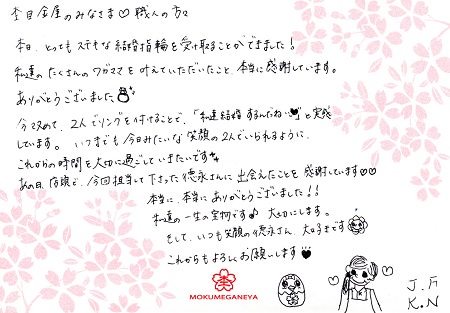 杢目金屋のみなさま♡職人の方々
本日、とってもステキな結婚指輪を受け取ることができました！
私達のたくさんのワガママを叶えていただいたこと、本当に感謝しています。
ありがとうございました
今改めて、2人でリングを付けることで、「私達結婚するんだね…」と実感
しています。いつまでも今日みたいな笑顔の2人でいられるように、
これからの時間を大切に過ごしていきたいです
あの日、店頭で、今回担当して下さった徳永さんに出会えたことを感謝しています♡♡
本当に、本当にありがとうございました！！
私達の一生の宝物です♪大切にします。
そして、いつも笑顔の徳永さん、大好きです
これからもよろしくお願いします
MOKUMEGANEYA
K.N